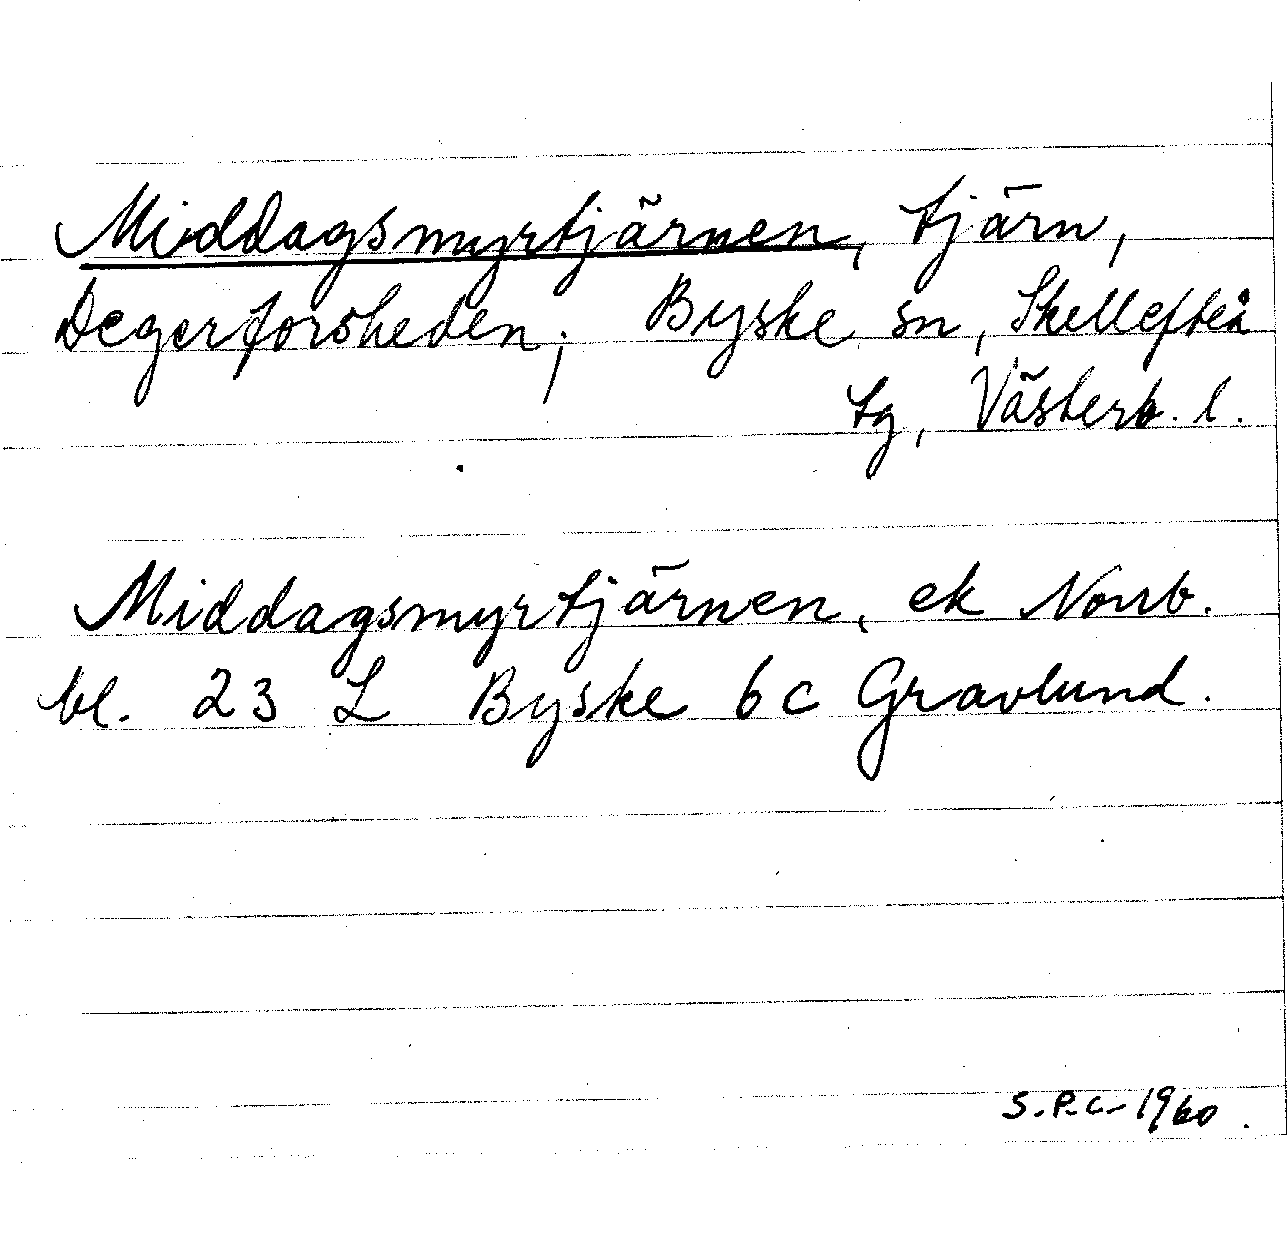 Middagsmyrtjärnen, tjärn,
Degerforsheden; Byske sn, Skellefteå
tg, Västerb. l.
Middagsmyrtjärnen, ek Norrb.
bl. 23 L Byske 6c Gravlund.
S.P.C. 1960.